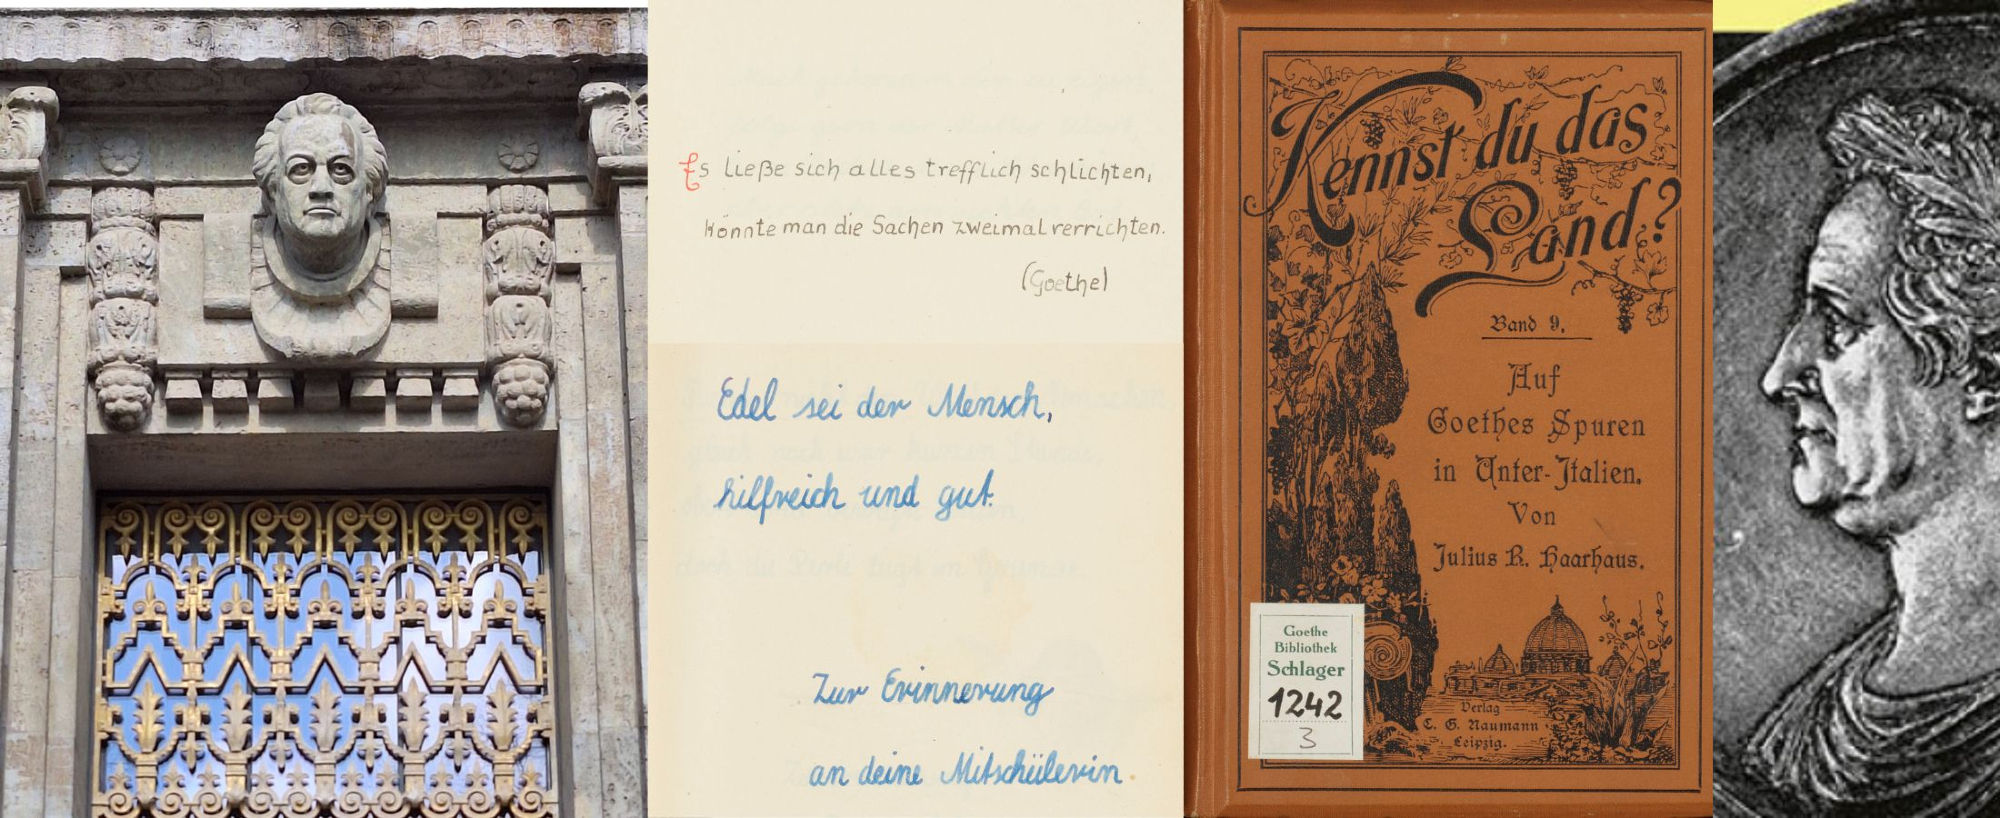 Es ließe sich alles trefflich schlichten,
könnte man die Sachen zweimal verrichten.
(Goethe)
Edel sei der Mensch,
hilfreich und gut.
Zur Erinnerung
an deine Mitschülerin.
Kennst du das
Land?
Band 9.
Auf
Goethes Spuren
in Unter-Italien.
Von
Julius R. Haarhaus.
Goethe
Bibliothek
Schlager
1242
3
Verlag
C. G. Naumann
Leipzig.